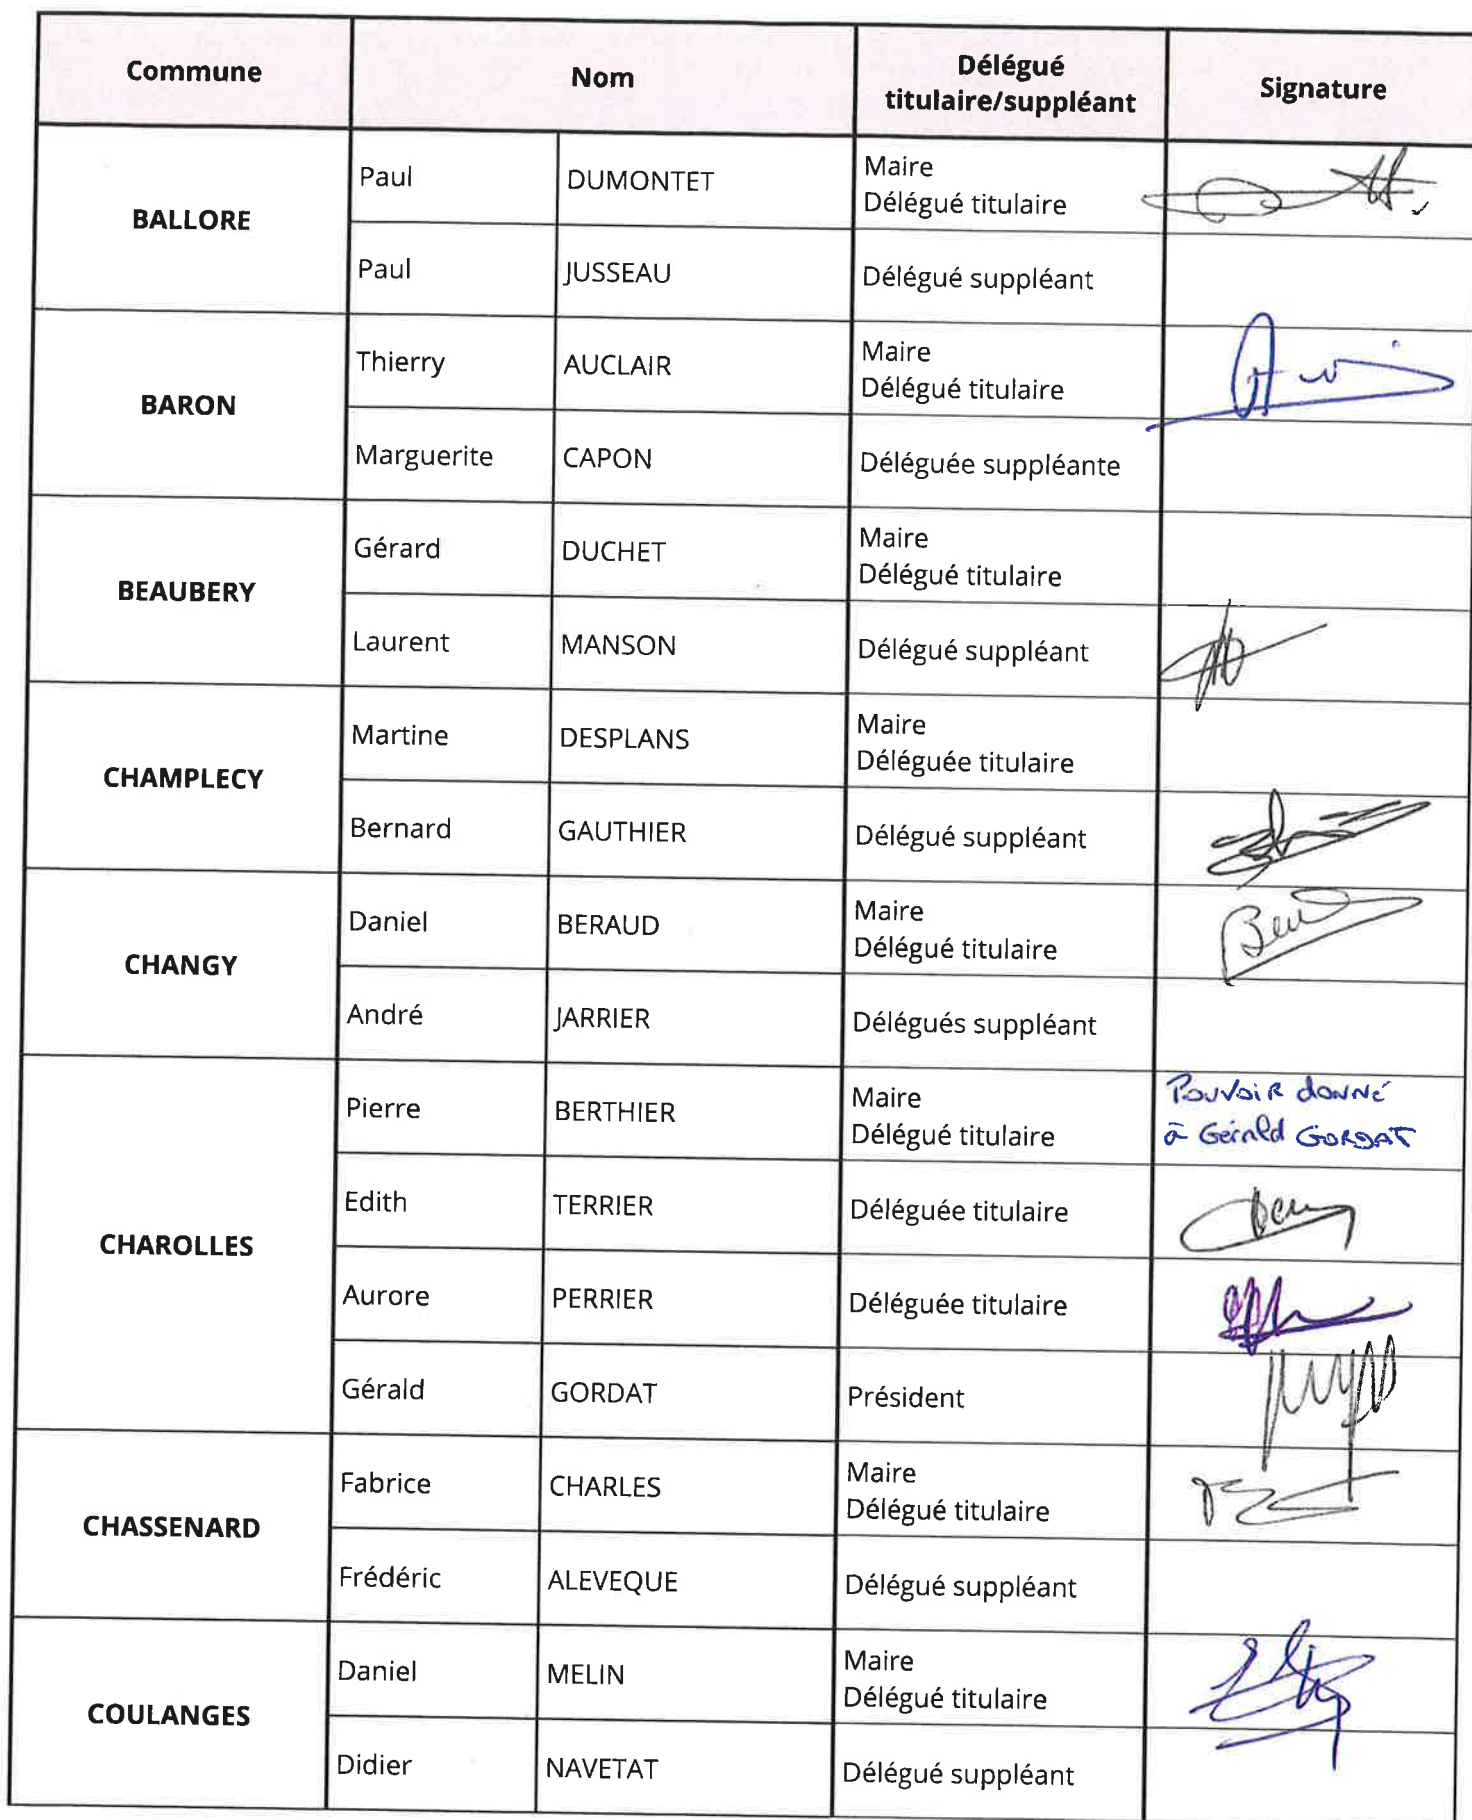 Commune Nom Délégué titulaire/suppléant Signature
BALLORE
Paul DUMONTET Maire
Délégué titulaire
Paul JUSSEAU Délégué suppléant
BARON
Thierry AUCLAIR Maire
Délégué titulaire
Marguerite CAPON Déléguée suppléante
BEAUBERY
Gérard DUCHET Maire
Délégué titulaire
Laurent MANSON Délégué suppléant
CHAMPLECY
Martine DESPLANS Maire
Déléguée titulaire
Bernard GAUTHIER Délégué suppléant
CHANGY
Daniel BERAUD Maire
Délégué titulaire
André JARRIER Délégués suppléant
CHAROLLES
Pierre BERTHIER Maire
Délégué titulaire
Pouvoir donné
à Gérald GORDAT
Edith TERRIER Déléguée titulaire
Aurore PERRIER Déléguée titulaire
Gérald GORDAT Président
CHASSENARD
Fabrice CHARLES Maire
Délégué titulaire
Frédéric ALEVEQUE Délégué suppléant
COULANGES
Daniel MELIN Maire
Délégué titulaire
Didier NAVETAT Délégué suppléant